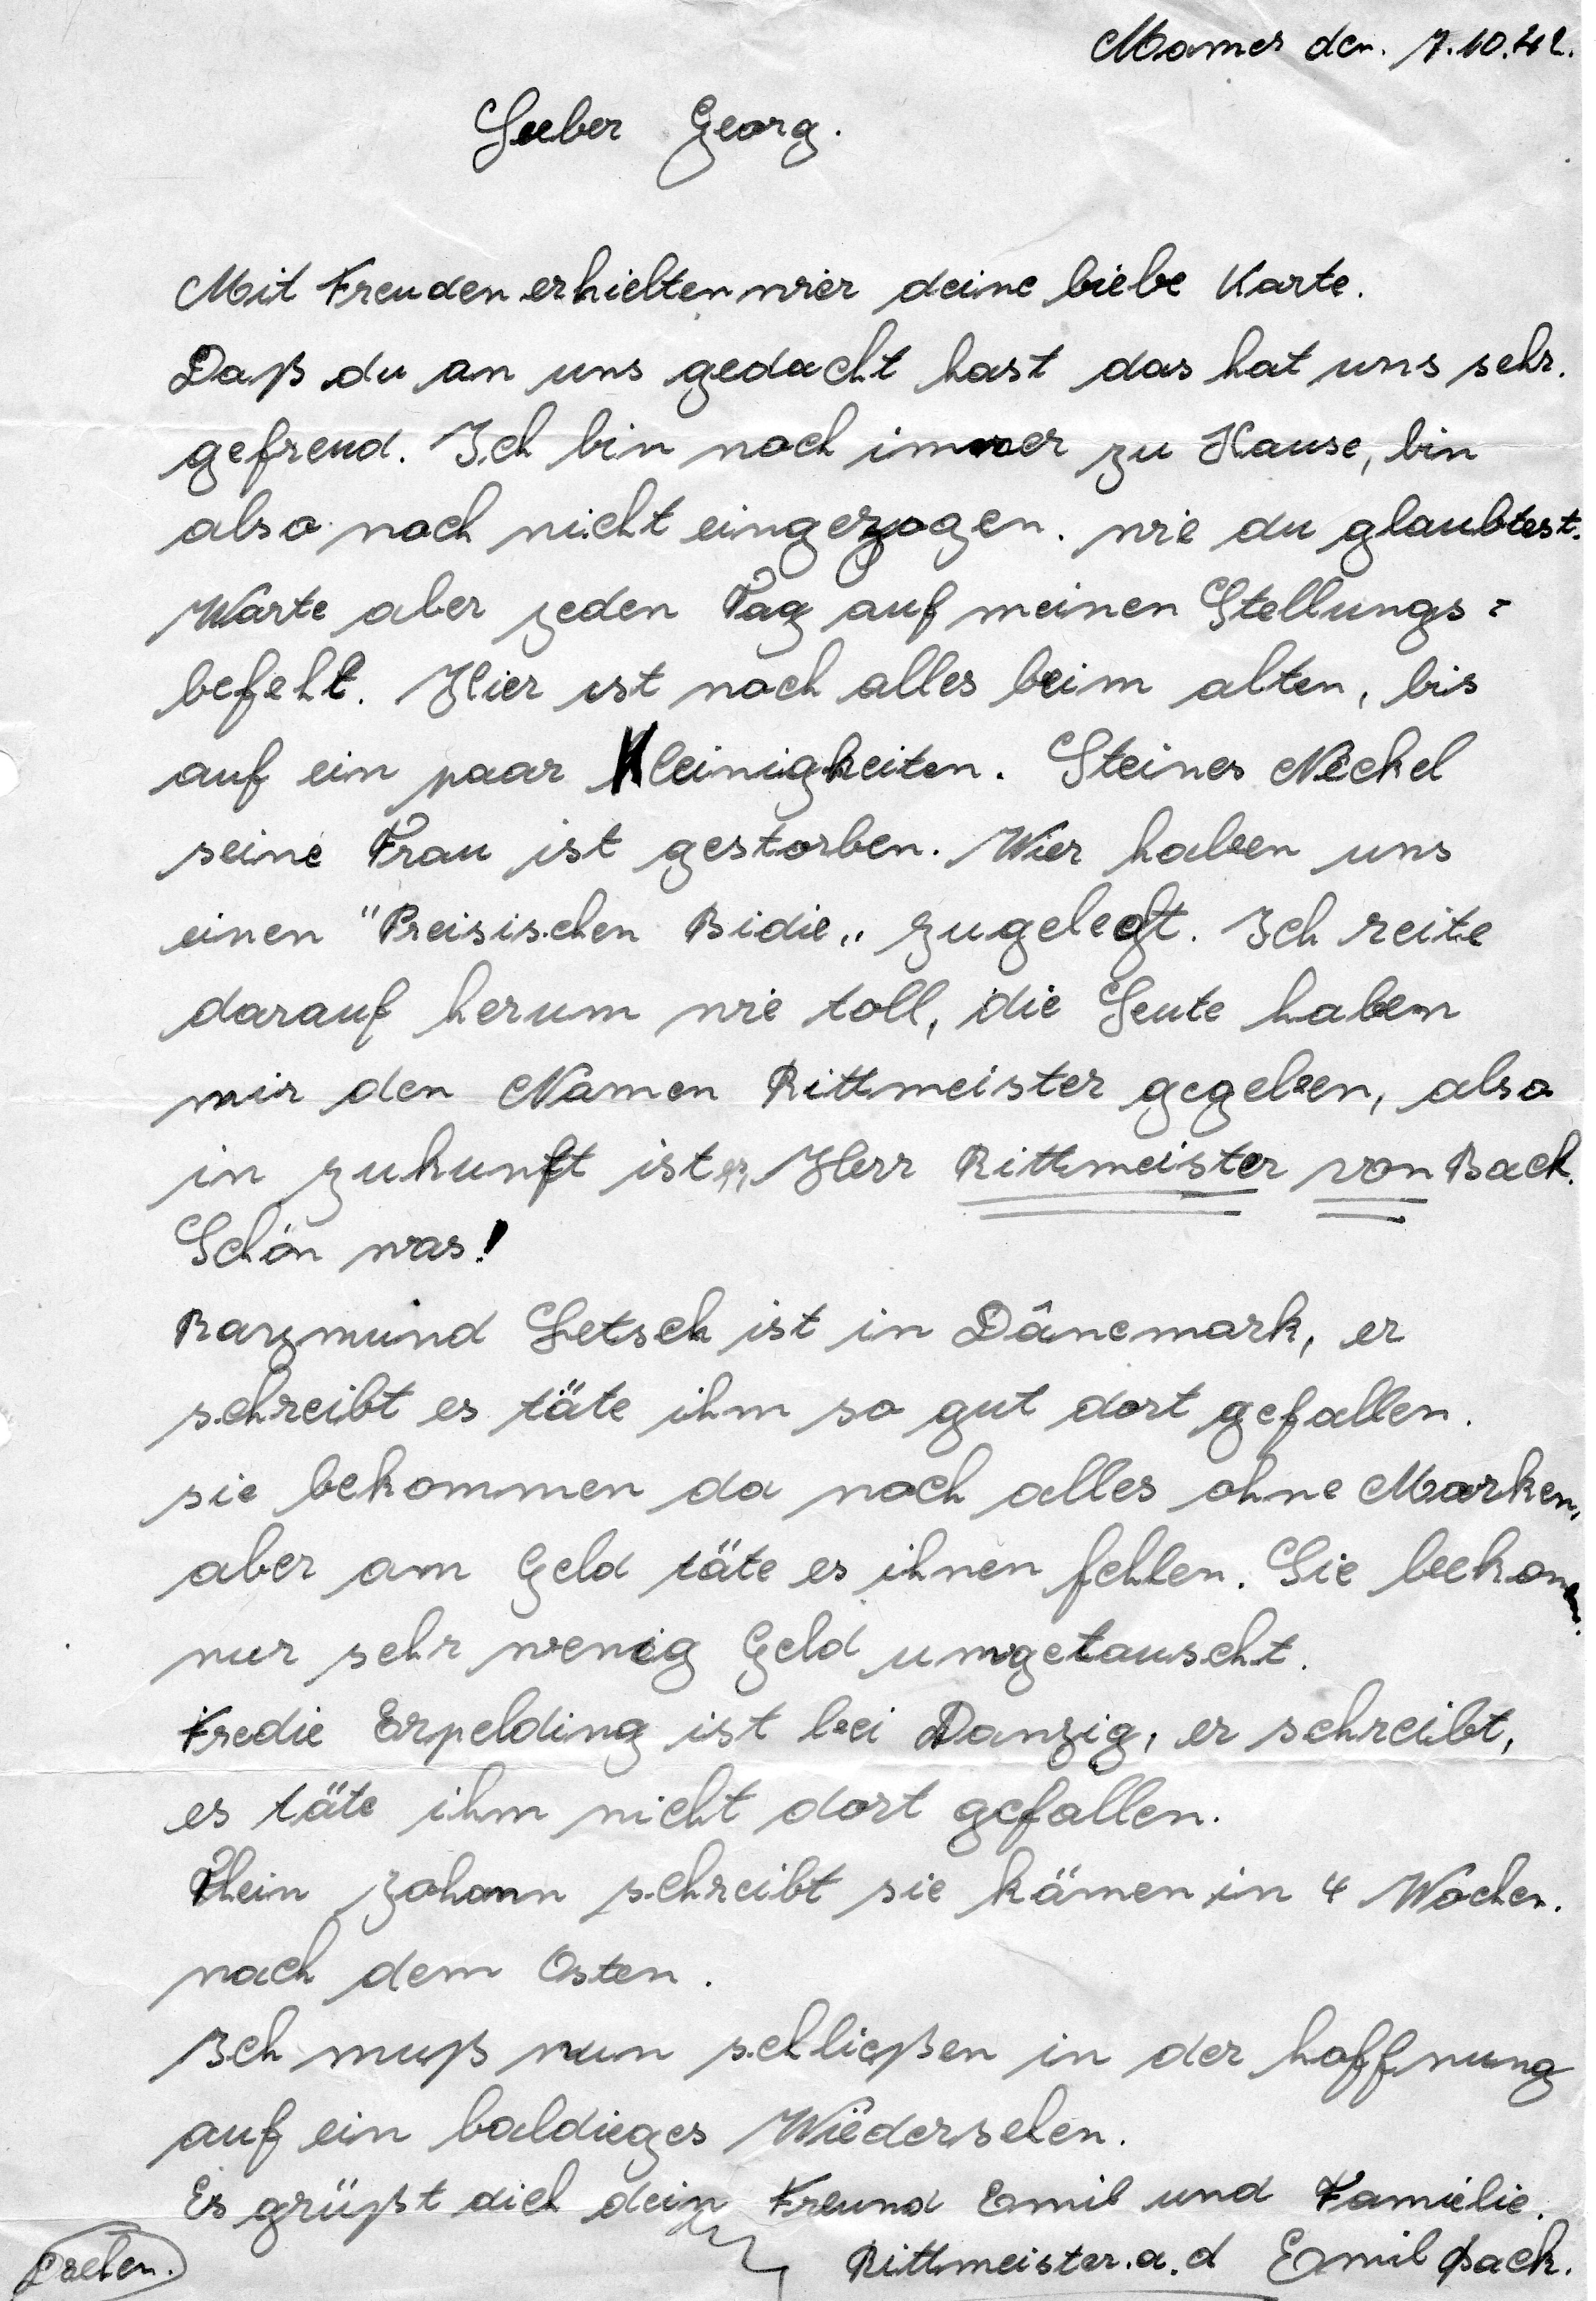 Mamer den. 7.10.42.
Lieber Georg.
Mit Freuden erhielten wier deine liebe Karte.
Daß du an uns gedacht hast das hat uns sehr.
gefreud. Ich bin noch immer zu Hause, bin
also noch nicht eingezogen. wie du glaubtest.
Warte aber jeden Tag auf meinen Stellungs=
befehl. Hier ist noch alles beim alten, bis
auf ein paar Kleinigkeiten. Steines Nickel
seine Frau ist gestorben. Wier haben uns
einen "Preisischen Bidie„ zugelegt. Ich reite
darauf herum wie toll, die Leute haben
mir den Namen Rittmeister gegeben, also
in zukunft ist es, Herr Rittmeister von Back.
Schön was!
Letsch ist in Dänemark, er
schreibt es täte ihm so gut dort gefallen.
sie bekommen da noch alles ohne Marken,
aber am Geld täte es ihnen fehlen. Sie bekommen
nur sehr wenig Geld umgetauscht.
Fredie Erpelding ist bei Danzig, er schreibt,
es täte ihm nicht dort gefallen.
Thein Johann schreibt sie kämen in 4 Wochen.
nach dem Osten.
Ich muß nun schließen in der hoffnung
auf ein baldieges Wiedersehen.
Es grüßt dich dein Freund Emil und Familie.
Rittmeister.a.d Emil Back.